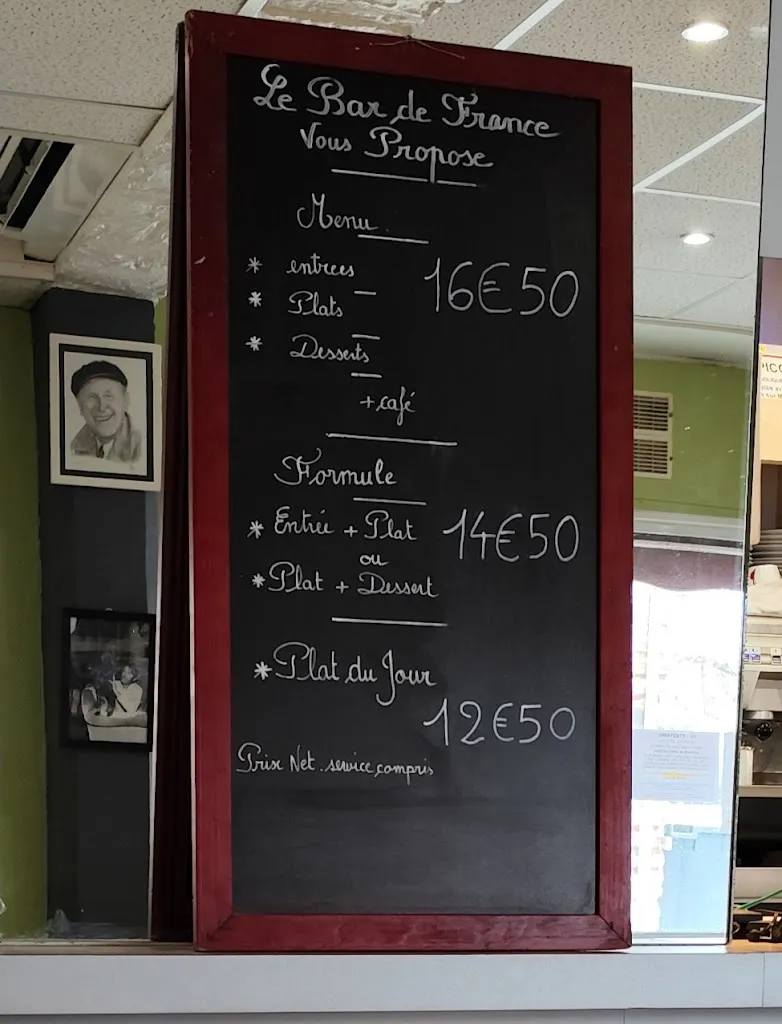 Le Bar de France
Vous Propose
Menu
* entrees
16€50
* Plats
* Desserts
+ café
Formule
* Entrée + Plat
14€50
ou
* Plat + Dessert
* Plat du Jour
12€50
Prix Net. service compris